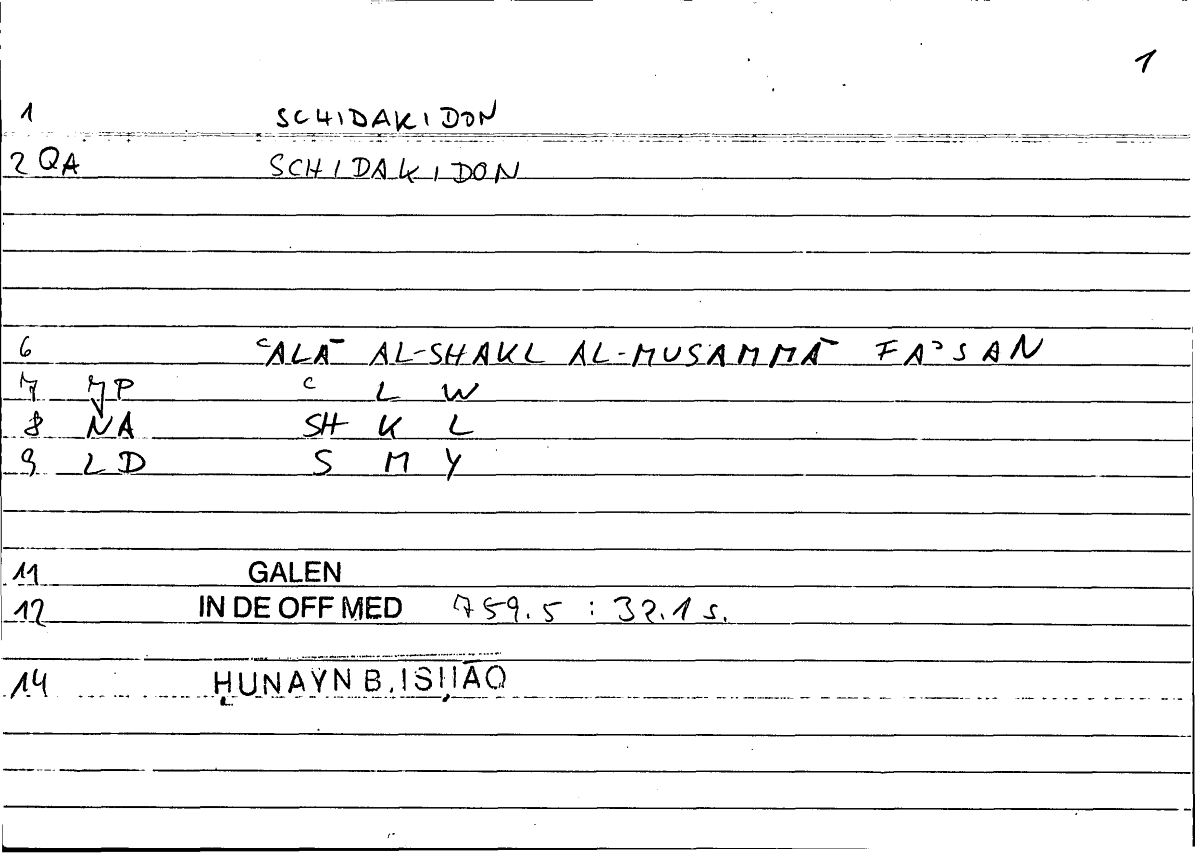 1
1 SCHIDAKIDON
2 QA SCHIDAKIDON
6 ʿALĀ AL-SHAKL AL-MUSAMMĀ FAʾSAN
7 JP ʿ L W
8 NA SH K L
9 LD S M Y
11 GALEN
12 IN DE OFF MED 759.5 : 32.1 s.
14 ḤUNAYN B. ISḤĀQ